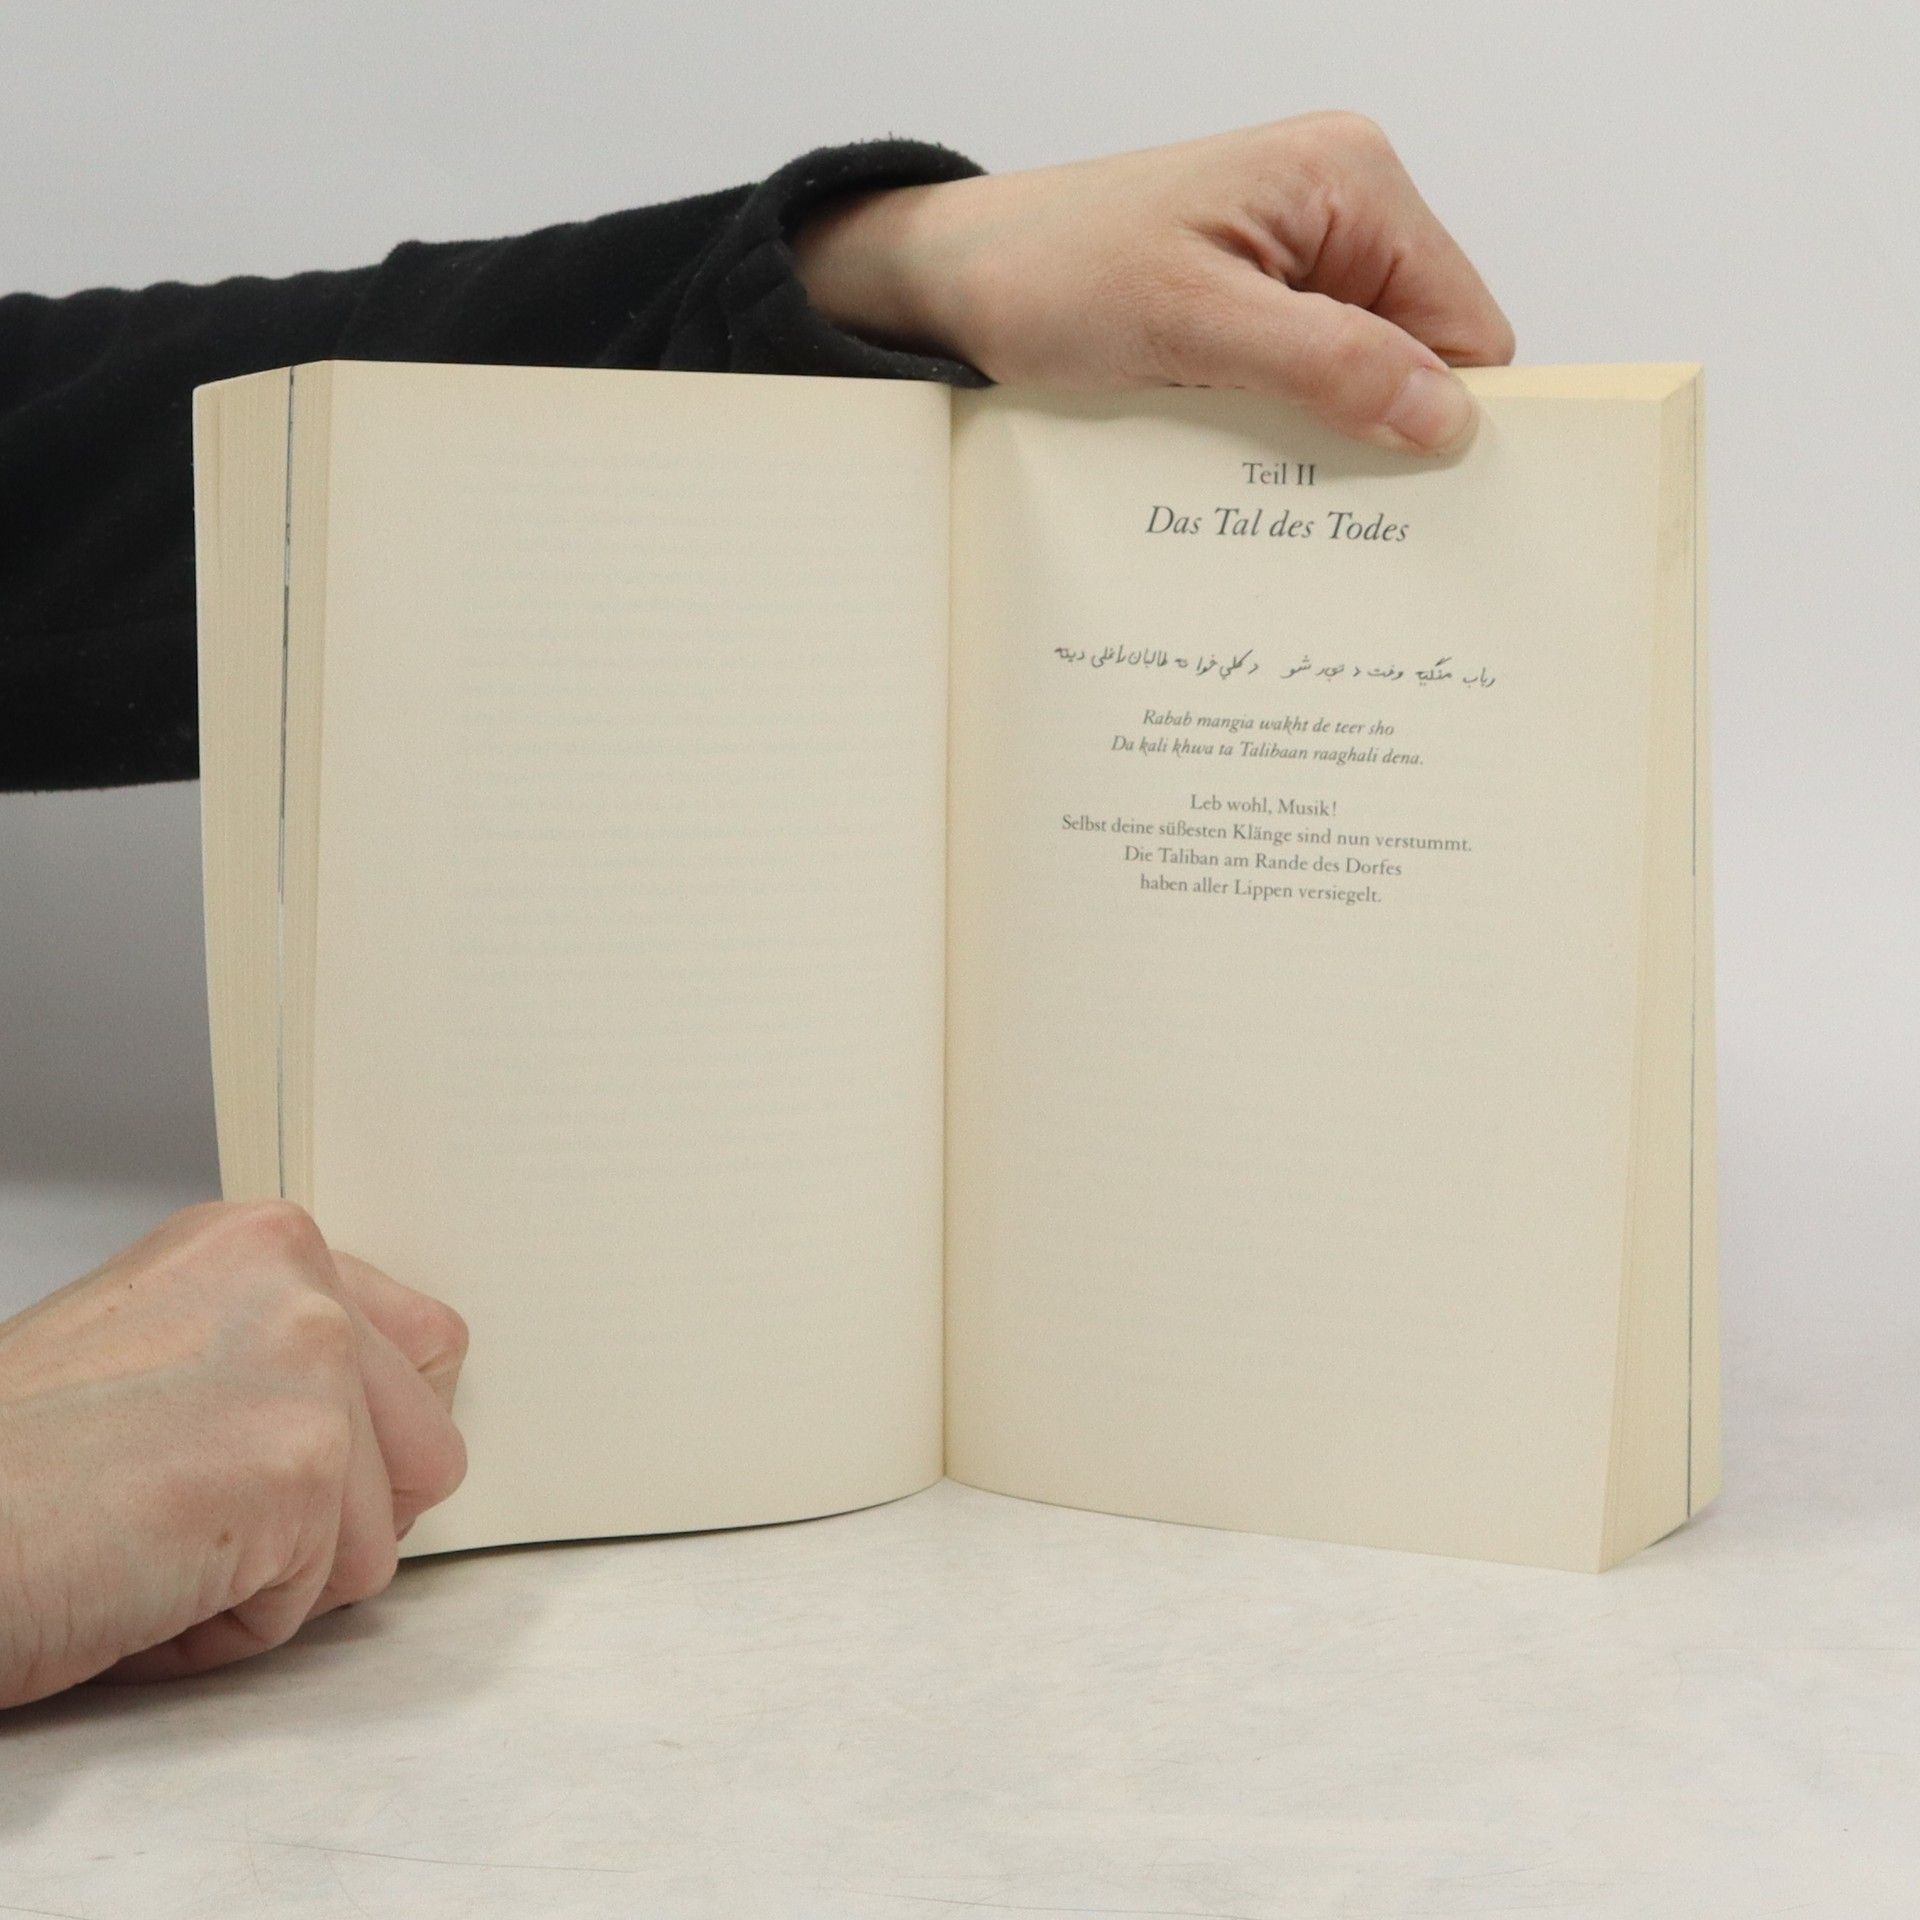 Teil II
Das Tal des Todes
رباب منگيه وخت د تېر شو د کلي خوا ته طالبان راغلي دينه
Rabab mangia wakht de teer sho
Da kali khwa ta Talibaan raaghali dena.
Leb wohl, Musik!
Selbst deine süßesten Klänge sind nun verstummt.
Die Taliban am Rande des Dorfes
haben aller Lippen versiegelt.